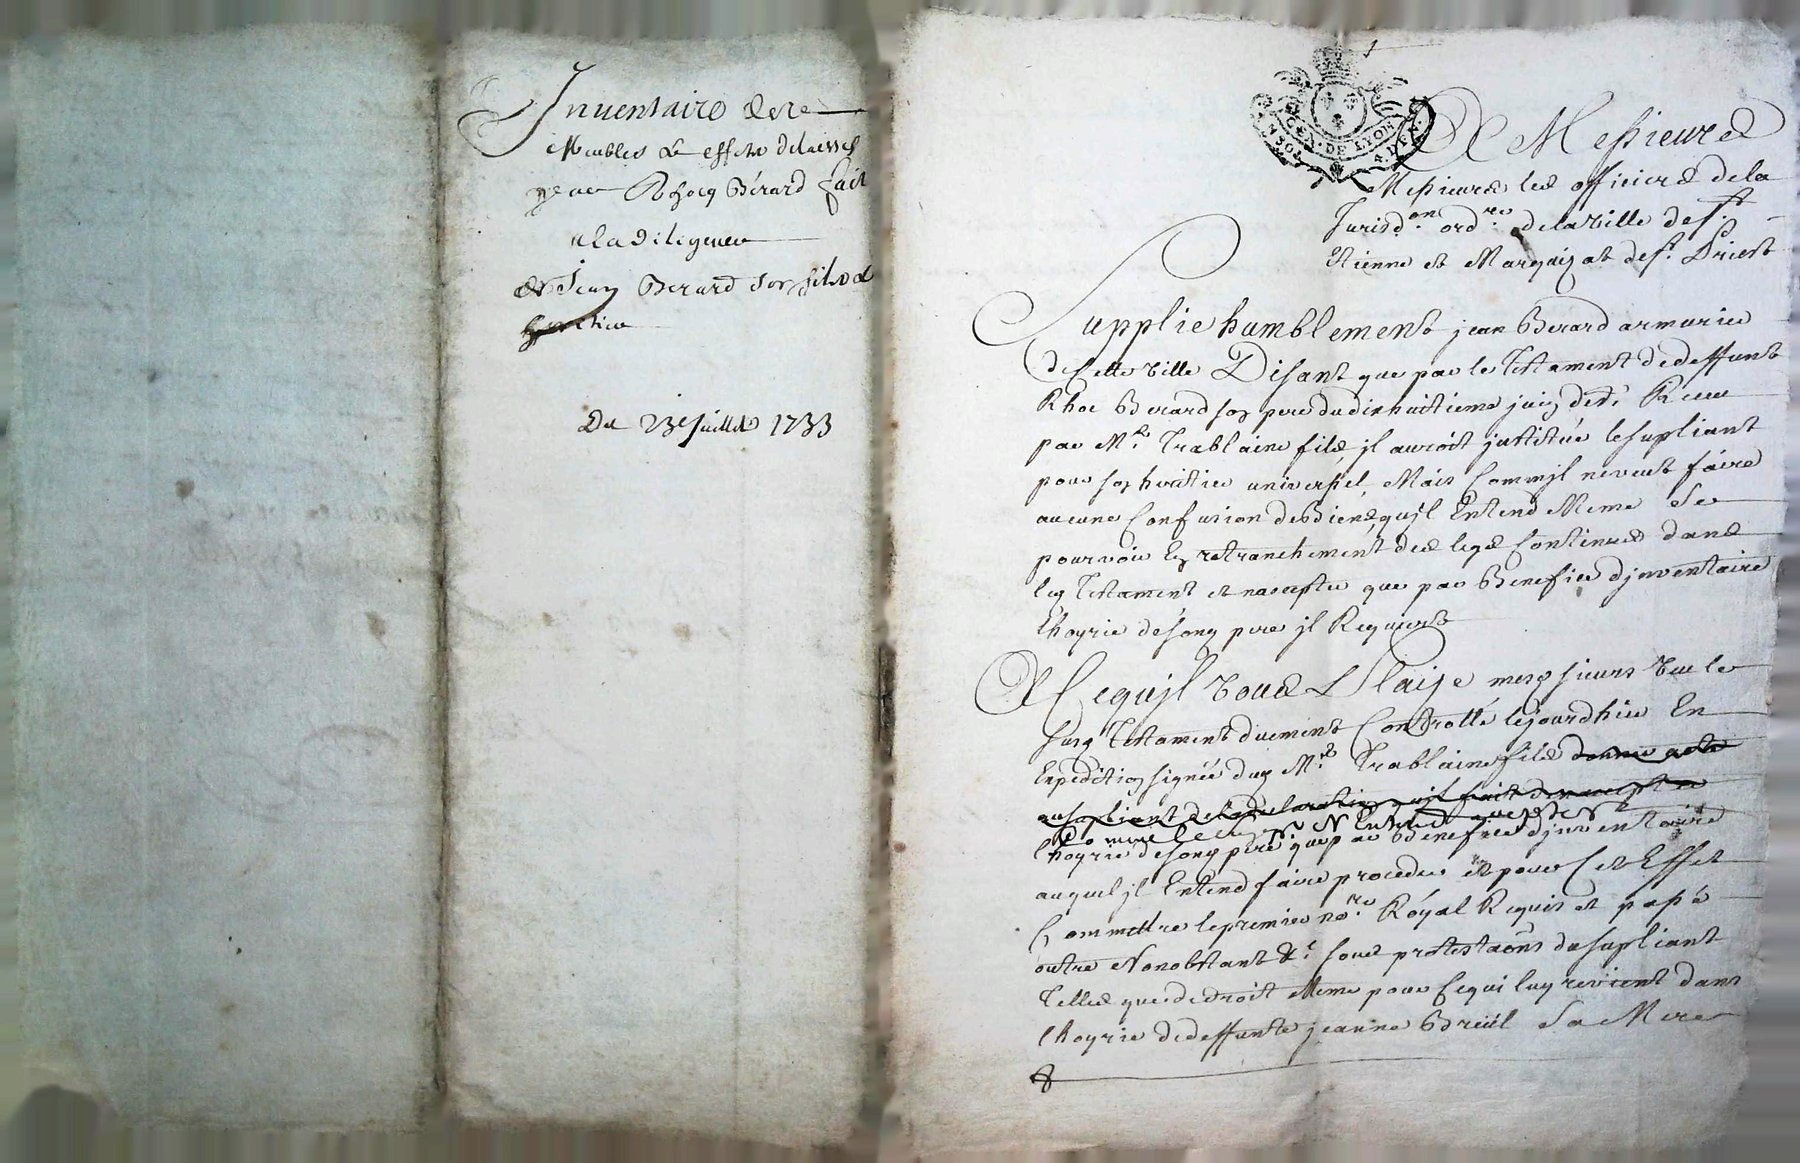 Inventaire des
Meubles & effets delaissés
par Rhocq Bérard fait
a la diligence
de Jean Berard son fils &
heritier
Du 23e Juillet 1733
GEN. DE LYON
A Messieurs
Messieurs les officiers de la
Jurisd.on ord.re de la ville de St
Etienne et Marquizat de St. Priest
Supplie humblement jean Berard armurier
de Cette ville Disant que par le Testament de deffunt
Rhoc Berard son pere du dixhuitieme juin der.r Receu
par Me. Trablaine fils jl auroit jnstitué le supliant
pour son heritier universel, Mais Comm jl ne veut faire
aucune Confusion des Biens qujl Entend Meme Se
pourvoir En retranchement des legs Contenus dans
led Testament et n'accepter que par Benefice djnventaire
l'hoyrie de sond pere jl Requiert
A Ce qujl vous Plaise messieurs Veu le
susd Testament duement Controllé le jourdhier En
Expedition signée dud Me. Trablaine fils donner acte
au supliant de la declaration qujl fait de n'accepter
l'hoyrie de sond pere que par Benefice djnventaire
auquel jl Entend faire proceder et pour Cet Effet
Commettre le premier no.re Royal Requis et passé
outre Nonobstant &c. sous protestaons du supliant
Telles que de droit Meme pour Ce qui luy revient dans
l'hoyrie de deffunte jeanne Breüil Sa Mere